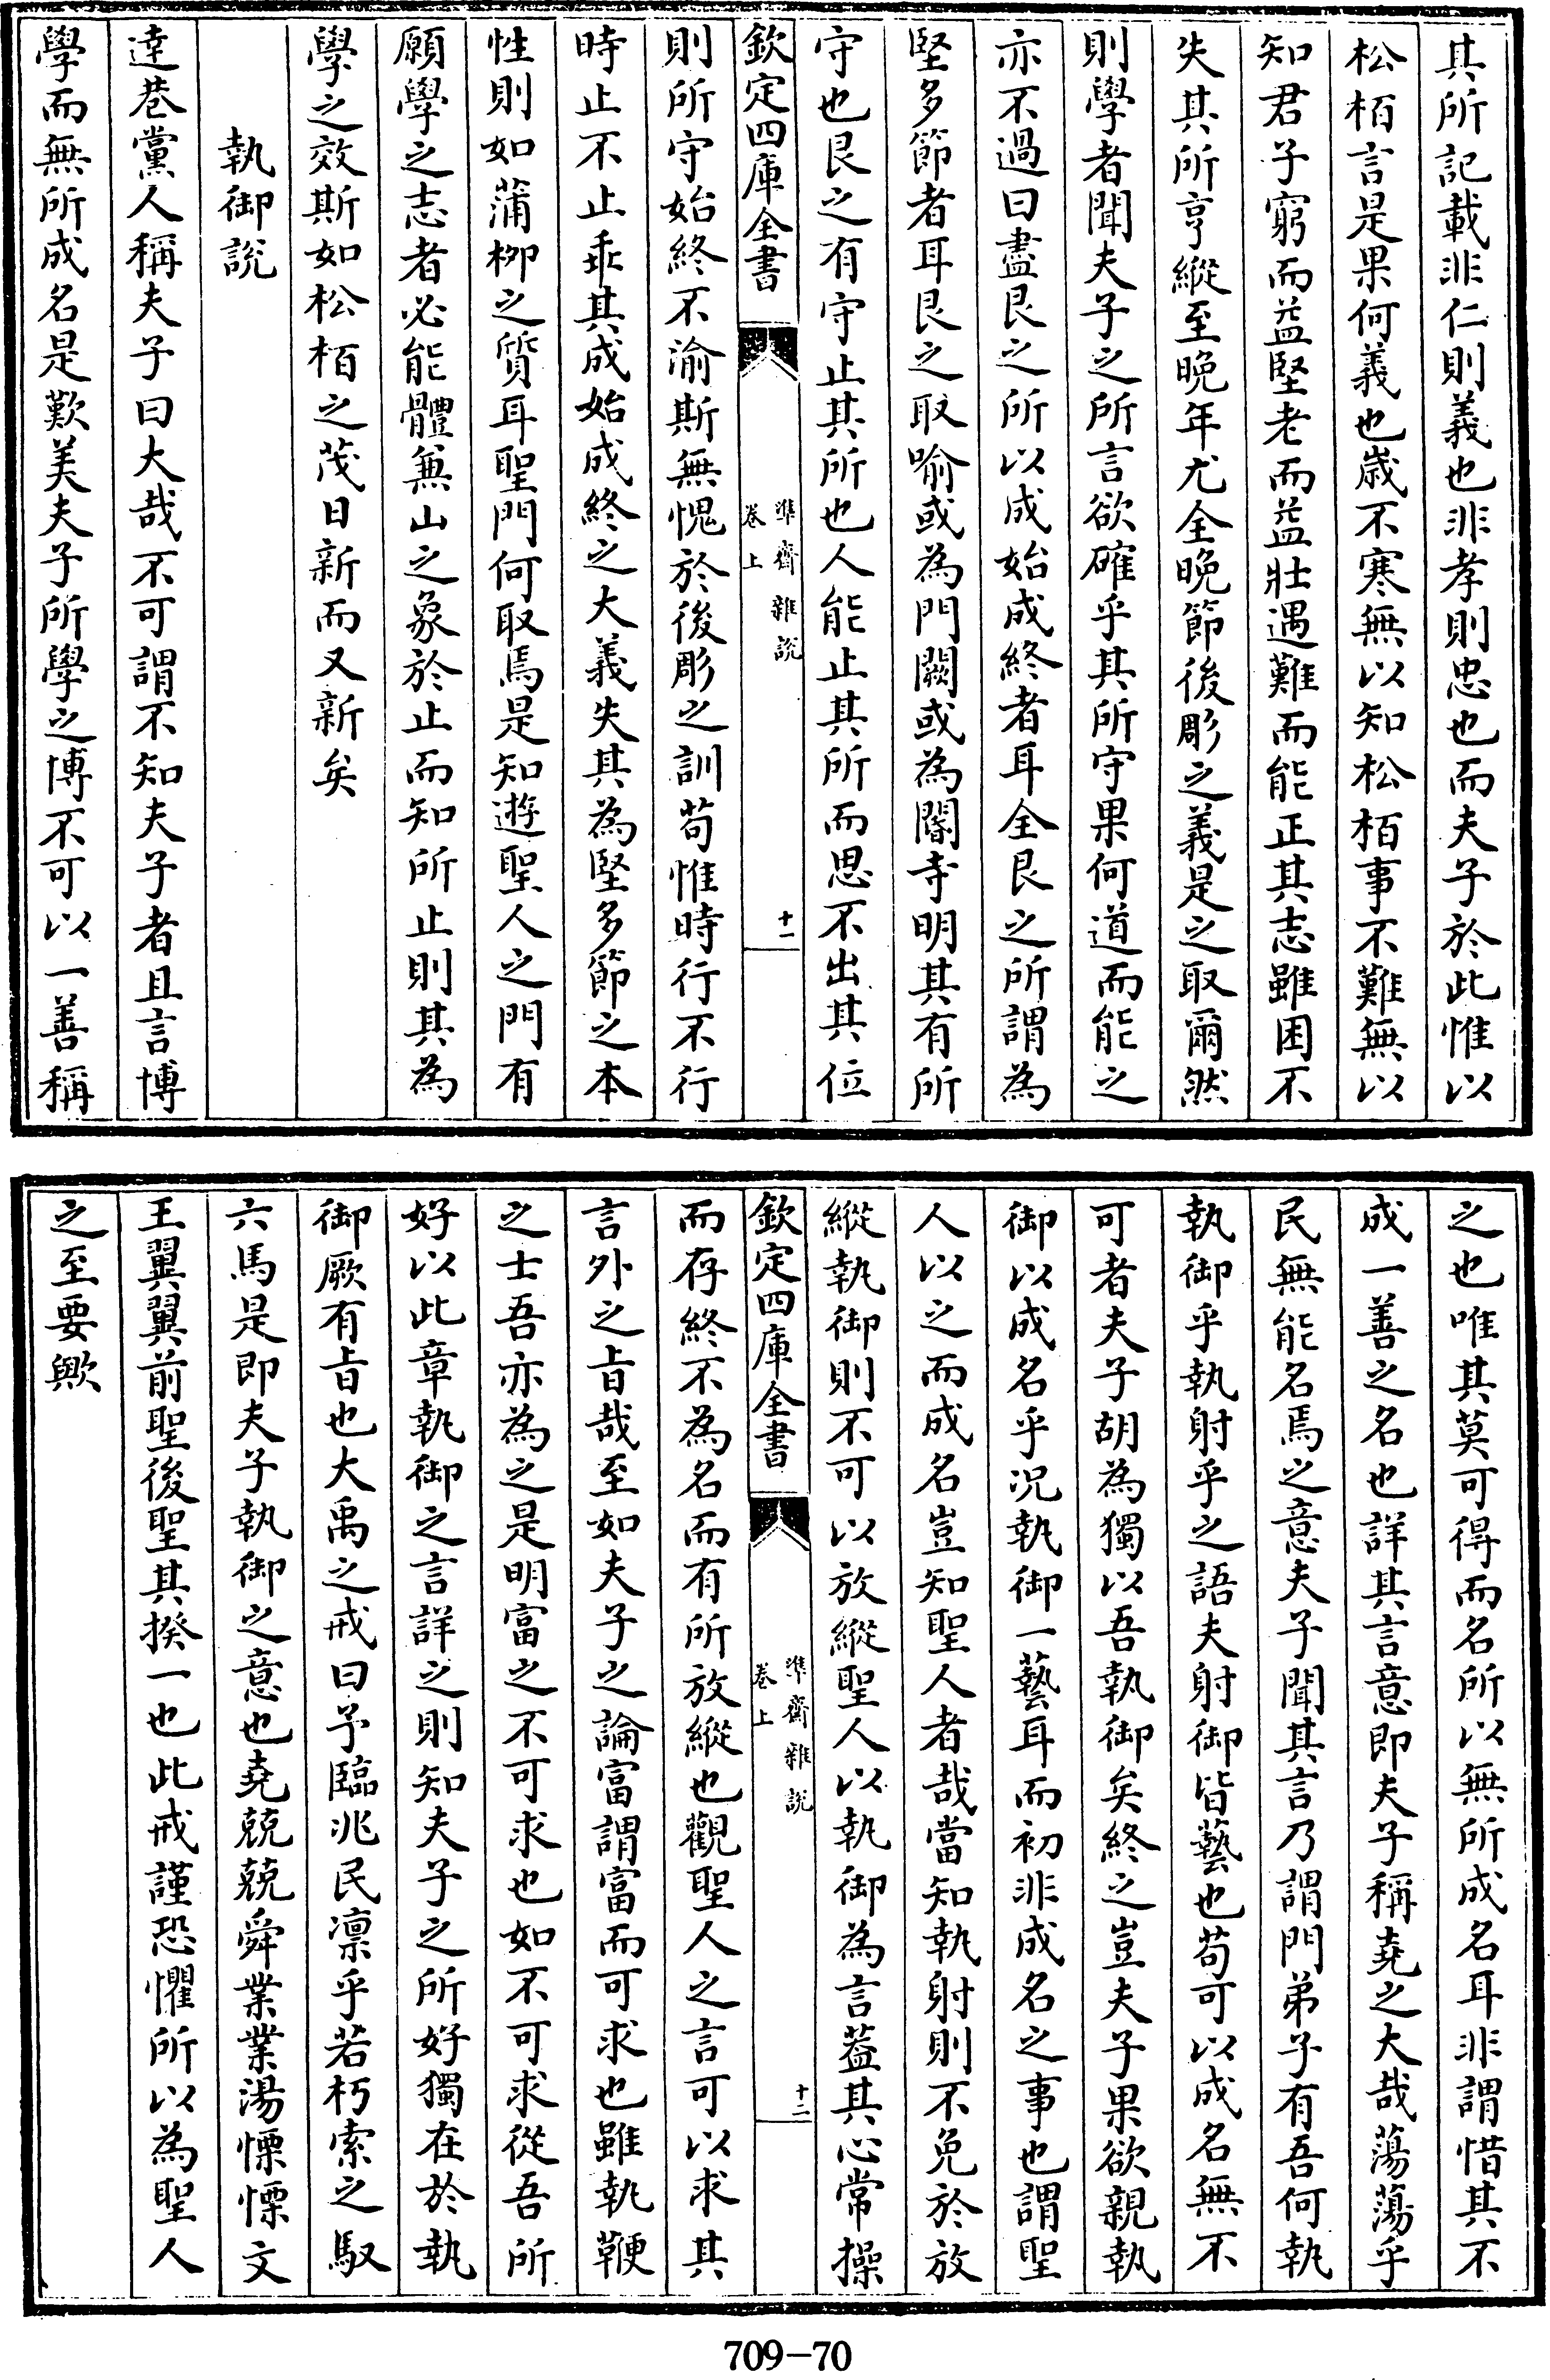 其所記載非仁則義也非孝則忠也而夫子於此惟以
松栢言是果何義也嵗不寒無以知松栢事不難無以
知君子窮而益堅老而益壯遇難而能正其志雖困不
失其所亨縱至晚年尤全晚節後彫之義是之取爾然
則學者聞夫子之所言欲確乎其所守果何道而能之
亦不過曰盡艮之所以成始成終者耳全艮之所謂為
堅多節者耳艮之取喻或為門闕或為閽寺明其有所
守也艮之有守止其所也人能止其所而思不出其位
欽定四庫全書
準齋雜說
卷上
十一
則所守始終不渝斯無愧於後彫之訓苟惟時行不行
時止不止乖其成始成終之大義失其為堅多節之本
性則如蒲栁之質耳聖門何取焉是知遊聖人之門有
願學之志者必能體兼山之象於止而知所止則其為
學之效斯如松栢之茂日新而又新矣
執御說
逹巷黨人稱夫子曰大哉不可謂不知夫子者且言博
學而無所成名是歎美夫子所學之博不可以一善稱
之也唯其莫可得而名所以無所成名耳非謂惜其不
成一善之名也詳其言意即夫子稱堯之大哉蕩蕩乎
民無能名焉之意夫子聞其言乃謂門弟子有吾何執
執御乎執射乎之語夫射御皆藝也苟可以成名無不
可者夫子胡為獨以吾執御矣終之豈夫子果欲親執
御以成名乎况執御一藝耳而初非成名之事也謂聖
人以之而成名豈知聖人者哉當知執射則不免於放
縱執御則不可以放縱聖人以執御為言葢其心常操
欽定四庫全書
準齋雜說
卷上
十二
而存終不為名而有所放縱也觀聖人之言可以求其
言外之旨哉至如夫子之論富謂富而可求也雖執鞭
之士吾亦為之是明富之不可求也如不可求從吾所
好以此章執御之言詳之則知夫子之所好獨在於執
御厥有旨也大禹之戒曰予臨兆民凛乎若朽索之馭
六馬是即夫子執御之意也堯兢兢舜業業湯慄慄文
王翼翼前聖後聖其揆一也此戒謹恐懼所以為聖人
之至要歟
709-70